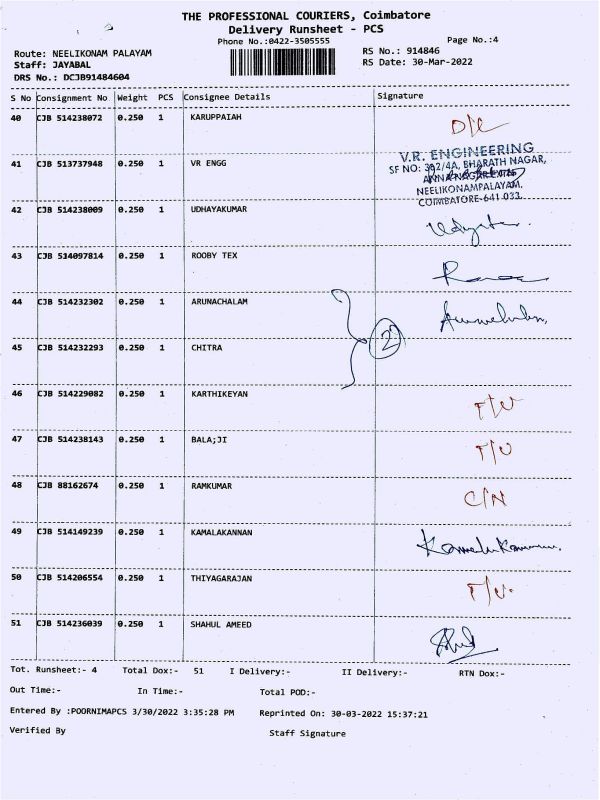 THE PROFESSIONAL COURIERS, Coimbatore
Delivery Runsheet - PCS
Phone No.:0422-3505555
Page No.:4
Route: NEELIKONAM PALAYAM
RS No.: 914846
Staff: JAYABAL
RS Date: 30-Mar-2022
DRS No.: DCJB91484604
S No Consignment No Weight PCS Consignee Details Signature
40 CJB 514238072 0.250 1 KARUPPAIAH D/L
41 CJB 513737948 0.250 1 VR ENGG
V.R. ENGINEERING
SF NO: 392/4A, BHARATH NAGAR,
NEELIKONAMPALAYAM,
COIMBATORE-641 033.
42 CJB 514238009 0.250 1 UDHAYAKUMAR
43 CJB 514097814 0.250 1 ROOBY TEX
44 CJB 514232302 0.250 1 ARUNACHALAM
2
45 CJB 514232293 0.250 1 CHITRA
46 CJB 514229082 0.250 1 KARTHIKEYAN
47 CJB 514238143 0.250 1 BALA;JI
48 CJB 88162674 0.250 1 RAMKUMAR C/N
49 CJB 514149239 0.250 1 KAMALAKANNAN
50 CJB 514206554 0.250 1 THIYAGARAJAN
51 CJB 514236039 0.250 1 SHAHUL AMEED
Tot. Runsheet:- 4 Total Dox:- 51 I Delivery:- II Delivery:- RTN Dox:-
Out Time:- In Time:- Total POD:-
Entered By :POORNIMAPCS 3/30/2022 3:35:28 PM Reprinted On: 30-03-2022 15:37:21
Verified By Staff Signature